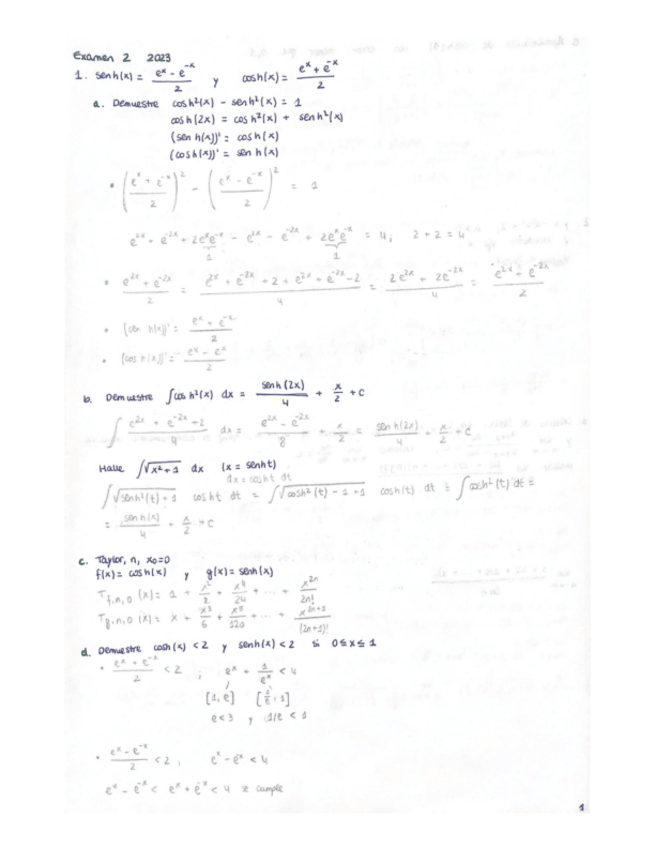 Examen 2 2023
1. senh(x) = (e^x - e^-x)/2 y cosh(x) = (e^x + e^-x)/2
a. Demuestre cosh²(x) - senh²(x) = 1
cosh(2x) = cosh²(x) + senh²(x)
(senh(x))' = cosh(x)
(cosh(x))' = senh(x)
• ((e^x + e^-x)/2)² - ((e^x - e^-x)/2)² = 1
e^2x + e^-2x + 2e^x e^-x - e^2x - e^-2x + 2e^x e^-x = 4; 2+2=4
1 1
• (e^2x + e^-2x)/2 = (e^2x + e^-2x + 2 + e^2x + e^-2x - 2)/4 = (2e^2x + 2e^-2x)/4 = (e^2x + e^-2x)/2
• (sen h(x))' = (e^x + e^-x)/2
• (cos h(x))' = (e^x - e^x)/2
b. Demuestre ∫cosh²(x) dx = senh(2x)/4 + x/2 + C
∫ (e^2x + e^-2x + 2)/4 dx = (e^2x - e^-2x)/8 + x/2 = senh(2x)/4 + x/2 + C
Halle ∫√(x²+1) dx (x = senht)
dx = cosht dt
∫√(senh²(t)+1) cosht dt = ∫√(cosh²(t) - 1 + 1) cosh(t) dt = ∫cosh²(t) dt =
= senh(x)/4 + x/2 + C
c. Taylor, n, x₀=0
f(x) = cosh(x) y g(x) = senh(x)
T f,n,0 (x) = 1 + x²/2 + x⁴/24 + ... + x^2n/2n!
T g,n,0 (x) = x + x³/6 + x⁵/120 + ... + x^(2n+1)/(2n+1)!
d. Demuestre cosh(x) < 2 y senh(x) < 2 si 0≤x≤1
• (e^x + e^-x)/2 < 2 ; e^x + 1/e^x < 4
[1,e] [1/e,1]
e<3 y 1/e < 1
• (e^x - e^-x)/2 < 2, e^x - e^-x < 4
e^x - e^-x < e^x + e^-x < 4 se cumple
1